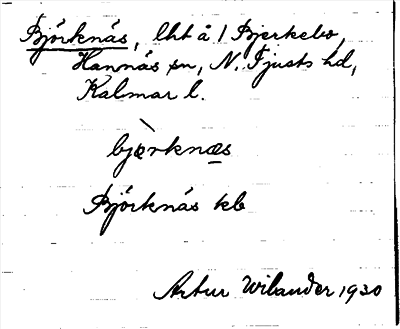 Björknäs, lht å 1 Bjerkebo,
Hannäs sn, N. Tjusts hd,
Kalmar l.
bjæ̀rknæs
Björknäs kb
Artur Wilander 1930